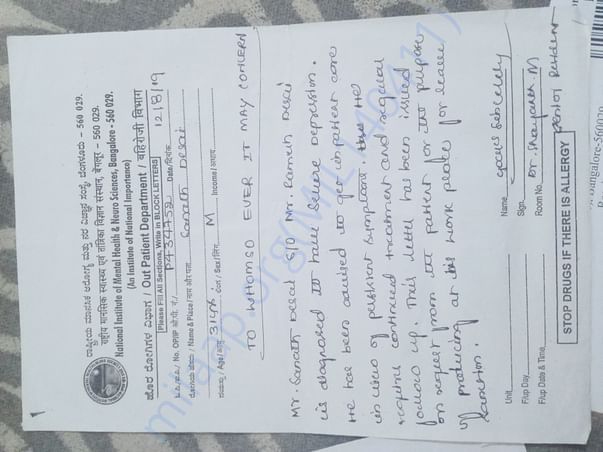 1
ರಾಷ್ಟ್ರೀಯ ಮಾನಸಿಕ ಆರೋಗ್ಯ ಮತ್ತು ನರ ವಿಜ್ಞಾನ ಸಂಸ್ಥೆ, ಬೆಂಗಳೂರು - 560 029.
राष्ट्रीय मानसिक स्वास्थ्य एवं तंत्रिका विज्ञान संस्थान, बेंगलूर - 560 029.
National Institute of Mental Health & Neuro Sciences, Bangalore - 560 029.
(An Institute of National Importance)
ಹೊರ ರೋಗಿಗಳ ವಿಭಾಗ / Out Patient Department / बहिरोगी विभाग
Please Fill All Sections, Write in BLOCK LETTERS
No. OP/IP P434752 Date/दिनांक 12/8/19
Name & Place/नाम और पता Sanath Desai
Age/आयु 31yrs Sex/लिंग M Income/आय
TO WHOMSO EVER IT MAY CONCERN
Mr. Sanath Desai S/O Mr. Ramesh Desai
is diagnosed to have Severe Depression.
He has been advised to get inpatient care
in view of persistent symptoms. He
require continued treatment and regular
follow up. This letter has been issued
on request from the patient for the purpose
of producing at his work place for leave
sanction.
Unit
F/up Day
F/up Date & Time
Name
Sign.
Room No.
Dr. M
Senior Resident
STOP DRUGS IF THERE IS ALLERGY
Bangalore-560029
milaap.org